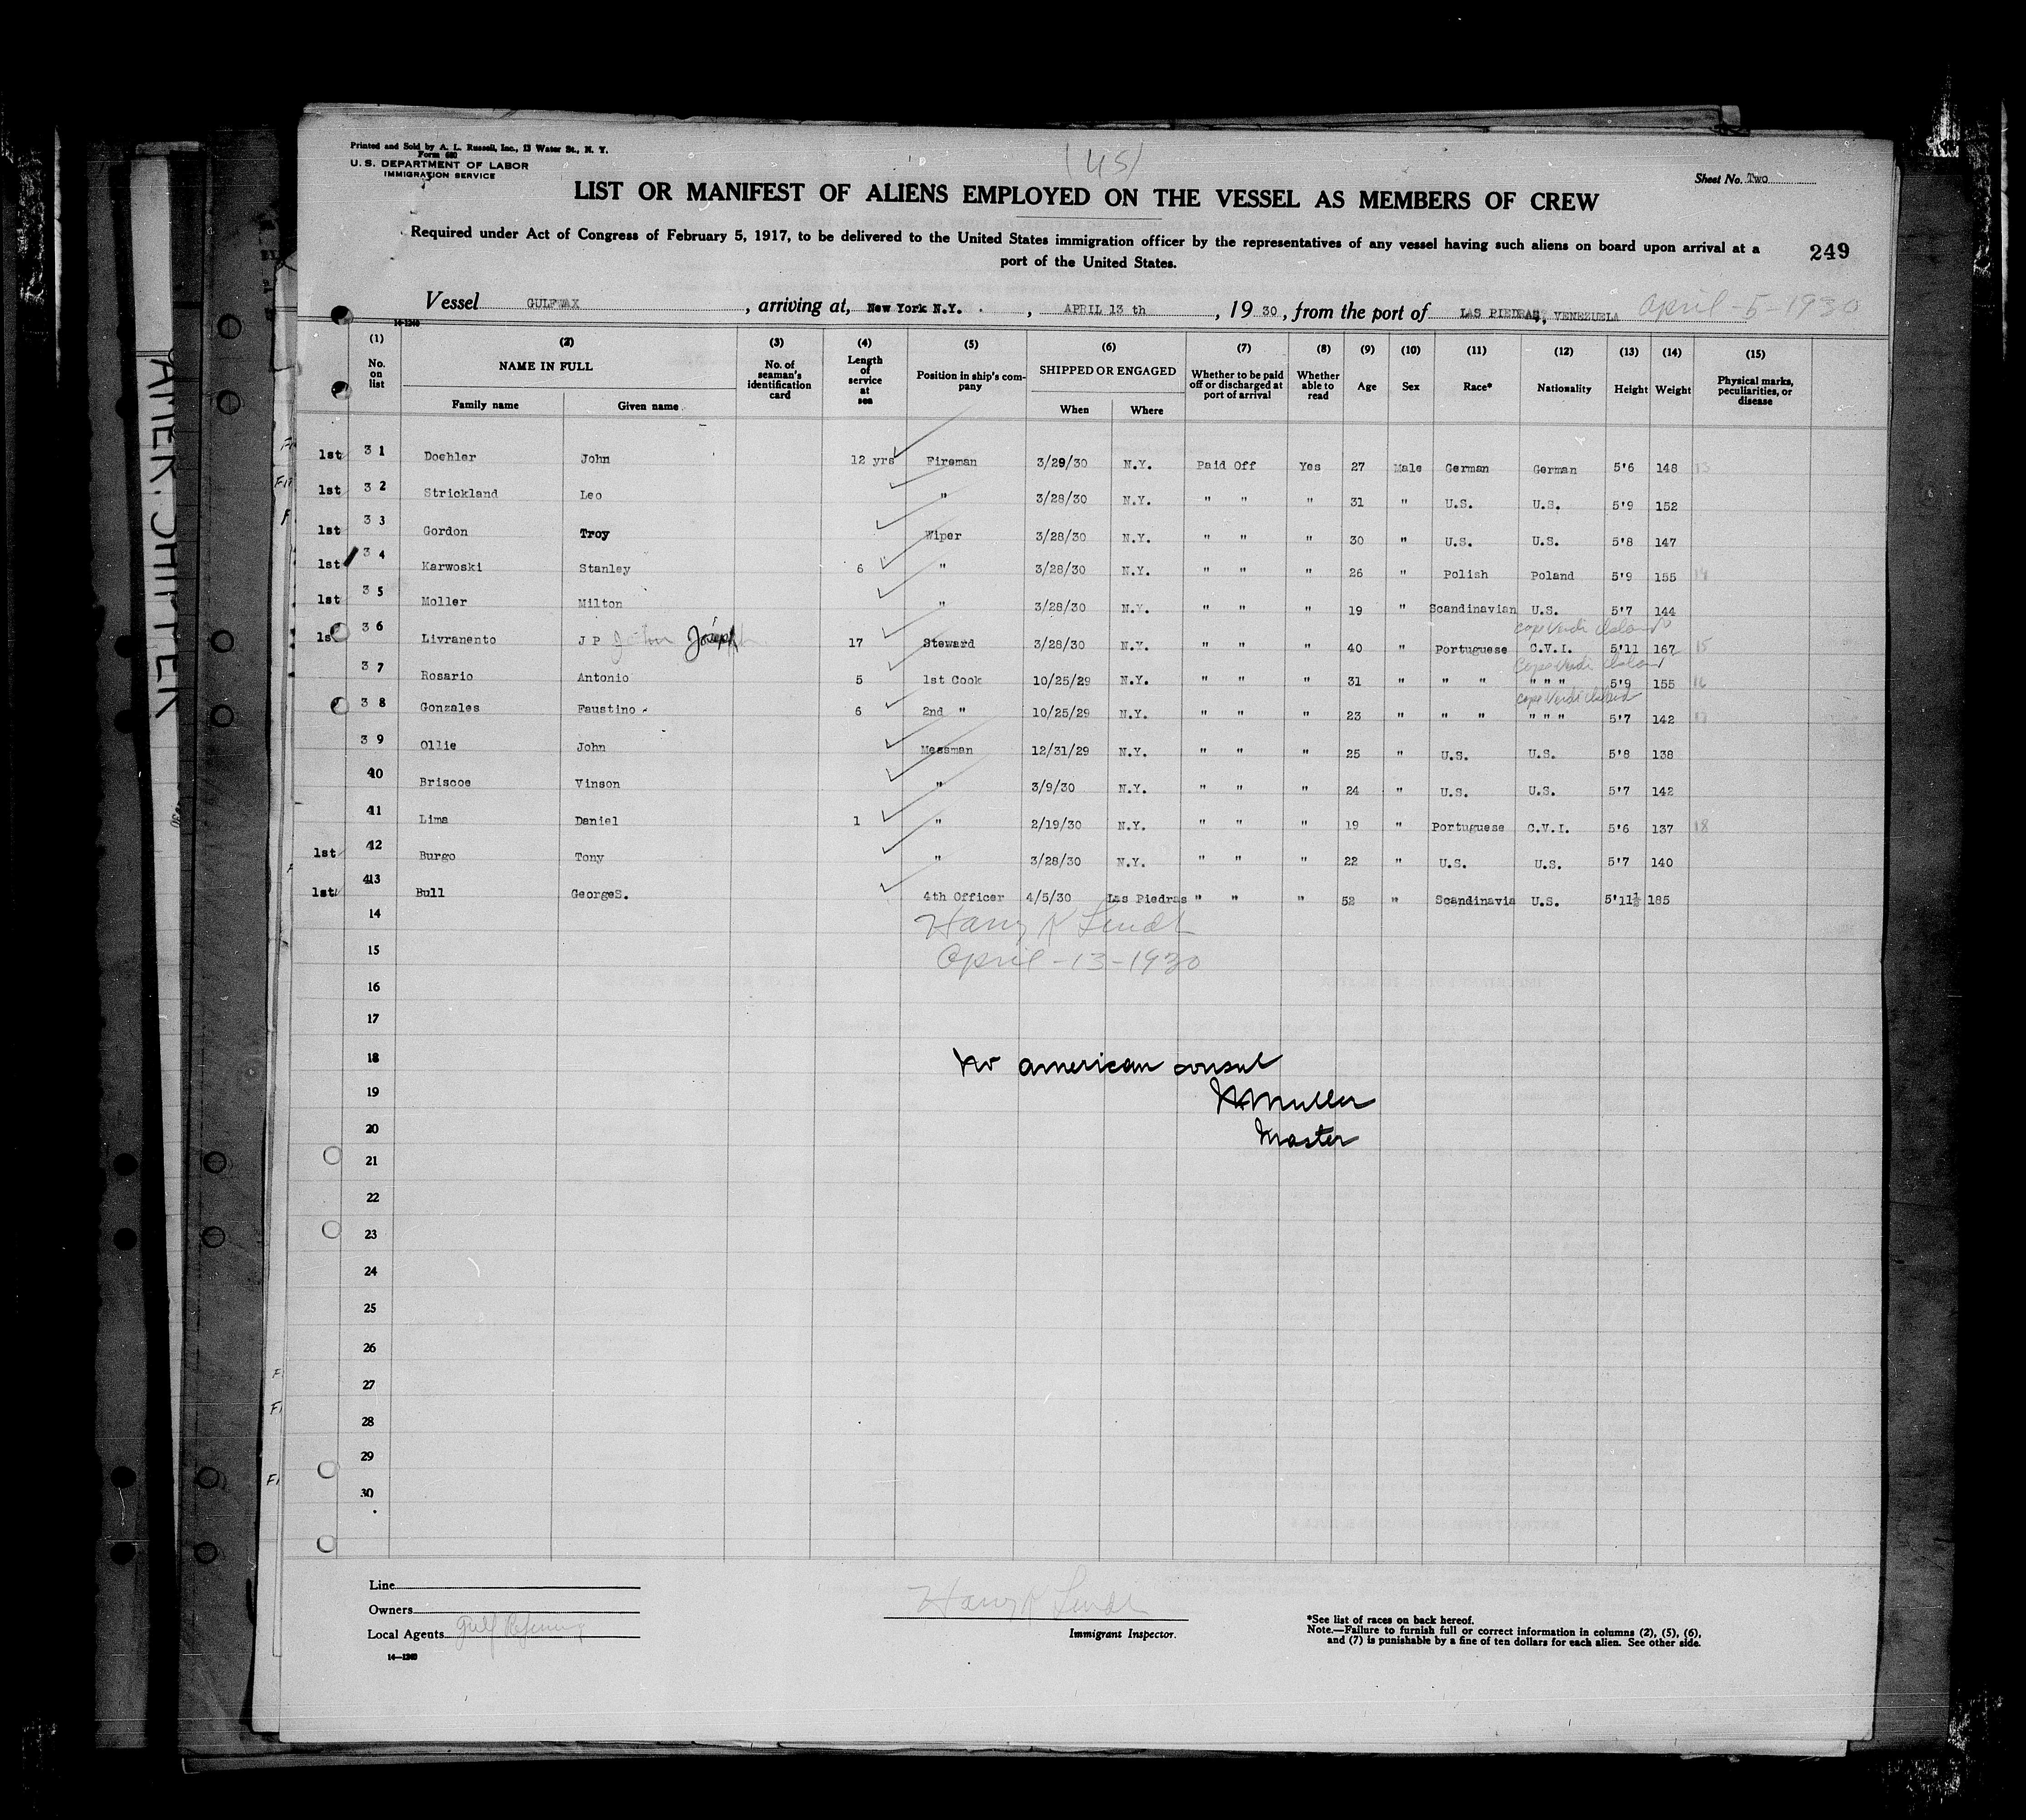 Printed and Sold by A. L. Russell, Inc., 13 Water St., N. Y.
Form 680
U. S. DEPARTMENT OF LABOR
IMMIGRATION SERVICE
(US)
Sheet No. Two
LIST OR MANIFEST OF ALIENS EMPLOYED ON THE VESSEL AS MEMBERS OF CREW
Required under Act of Congress of February 5, 1917, to be delivered to the United States immigration officer by the representatives of any vessel having such aliens on board upon arrival at a
port of the United States.
249
Vessel GULFWAX, arriving at, New York N.Y., APRIL 13 th, 19 30, from the port of LAS PIEDRAS, VENEZUELA April-5-1930
14-1240
(1) (2) (3) (4) (5) (6) (7) (8) (9) (10) (11) (12) (13) (14) (15)
No. on list NAME IN FULL Family name Given name No. of seaman's identification card Length of service at sea Position in ship's company SHIPPED OR ENGAGED When Where Whether to be paid off or discharged at port of arrival Whether able to read Age Sex Race* Nationality Height Weight Physical marks, peculiarities, or disease
1st 31 Doehler John 12 yrs Fireman 3/29/30 N.Y. Paid Off Yes 27 Male German German 5'6 148 13
1st 32 Strickland Leo " 3/28/30 N.Y. " " " 31 " U.S. U.S. 5'9 152
1st 33 Gordon Troy Wiper 3/28/30 N.Y. " " " 30 " U.S. U.S. 5'8 147
1st 34 Karwoski Stanley 6 " 3/28/30 N.Y. " " " 26 " Polish Poland 5'9 155 14
1st 35 Moller Milton " 3/28/30 N.Y. " " " 19 " Scandinavian U.S. 5'7 144
Cape Verdi Island
1st 36 Livranento J P John Joseph 17 Steward 3/28/30 N.Y. " " " 40 " Portuguese C.V.I. 5'11 167 15
Cape Verdi Island
37 Rosario Antonio 5 1st Cook 10/25/29 N.Y. " " " 31 " " " " " " 5'9 155 16
Cape Verdi Island
38 Gonzales Faustino 6 2nd " 10/25/29 N.Y. " " " 23 " " " " " " 5'7 142 17
39 Ollie John Messman 12/31/29 N.Y. " " " 25 " U.S. U.S. 5'8 138
40 Briscoe Vinson " 3/9/30 N.Y. " " " 24 " U.S. U.S. 5'7 142
41 Lima Daniel 1 " 2/19/30 N.Y. " " " 19 " Portuguese C.V.I. 5'6 137 18
1st 42 Burgo Tony " 3/28/30 N.Y. " " " 22 " U.S. U.S. 5'7 140
1st 43 Bull GeorgeS. 4th Officer 4/5/30 Las Piedras " " " 52 " Scandinavia U.S. 5'11½ 185
14 Harry K
15 April-13-1930
16
17
18 No american consul
19 Muller
20 Master
21
22
23
24
25
26
27
28
29
30
Line
Owners
Local Agents Gulf Refining
14—1240
Harry K
Immigrant Inspector.
*See list of races on back hereof.
Note.—Failure to furnish full or correct information in columns (2), (5), (6),
and (7) is punishable by a fine of ten dollars for each alien. See other side.